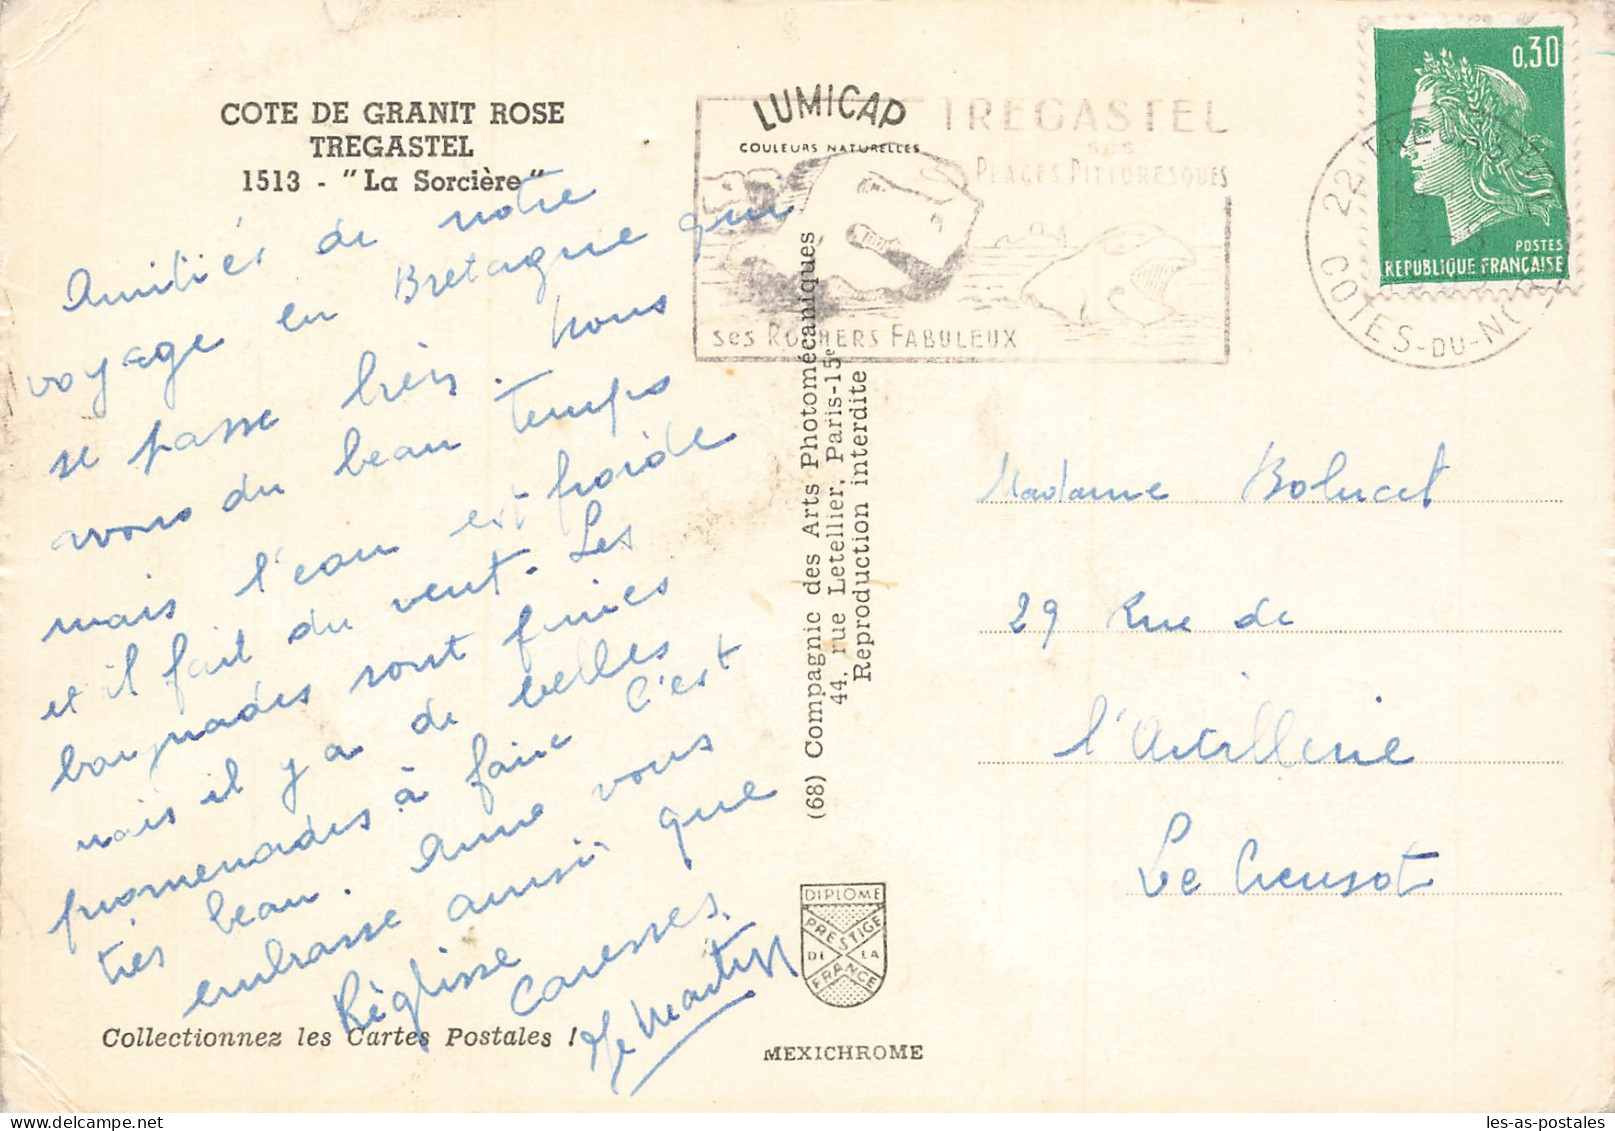 COTE DE GRANIT ROSE
TREGASTEL
1513 - "La Sorcière"
Amitiés de notre
voyage en Bretagne qui
se passe très. Nous
avons du beau temps
mais l'eau est froide
et il fait du vent. Les
baignades sont finies
mais il y a de belles
promenades à faire c'est
très beau. Anne vous
embrasse ainsi que
Réglisse Caresses.
Collectionnez les Cartes Postales !
LUMICAP
COULEURS NATURELLES
TREGASTEL
SES
PLAGES PITTORESQUES
SES ROCHERS FABULEUX
(68) Compagnie des Arts Photomécaniques
44, rue Letellier, Paris-15e
Reproduction interdite
DIPLOME
PRESTIGE
DE LA
FRANCE
MEXICHROME
0,30
POSTES
REPUBLIQUE FRANÇAISE
22 TREGASTEL
COTES-DU-NORD
Madame
29 Rue de
l'Artillerie
Le Creusot
les-as-postales
www.delcampe.net